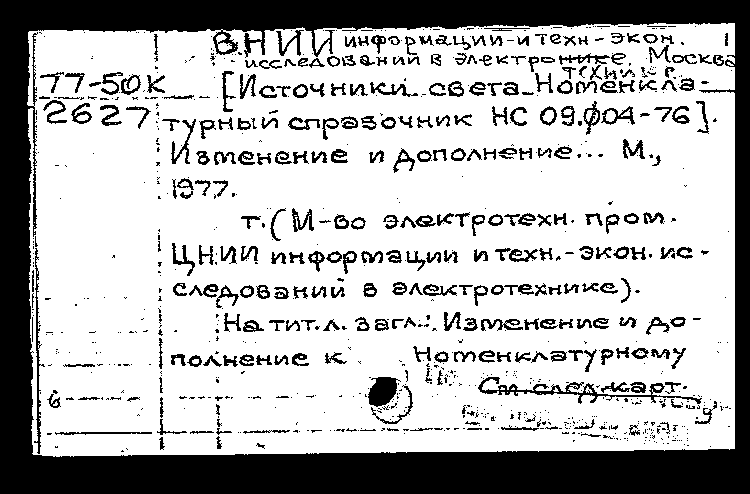 ВНИИ информации и техн.-экон. 1
исследований в электронике, Москва
технике
77-50К [Источники света. Номенкла-
2627 турный справочник НС 09.004-76].
Изменение и дополнение... М.,
1977.
т. (М-во электротехн. пром.
ЦНИИ информации и техн.-экон. ис-
следований в электротехнике).
На тит. л. загл.: Изменение и до-
полнение к Номенклатурному
См. след. карт.
6